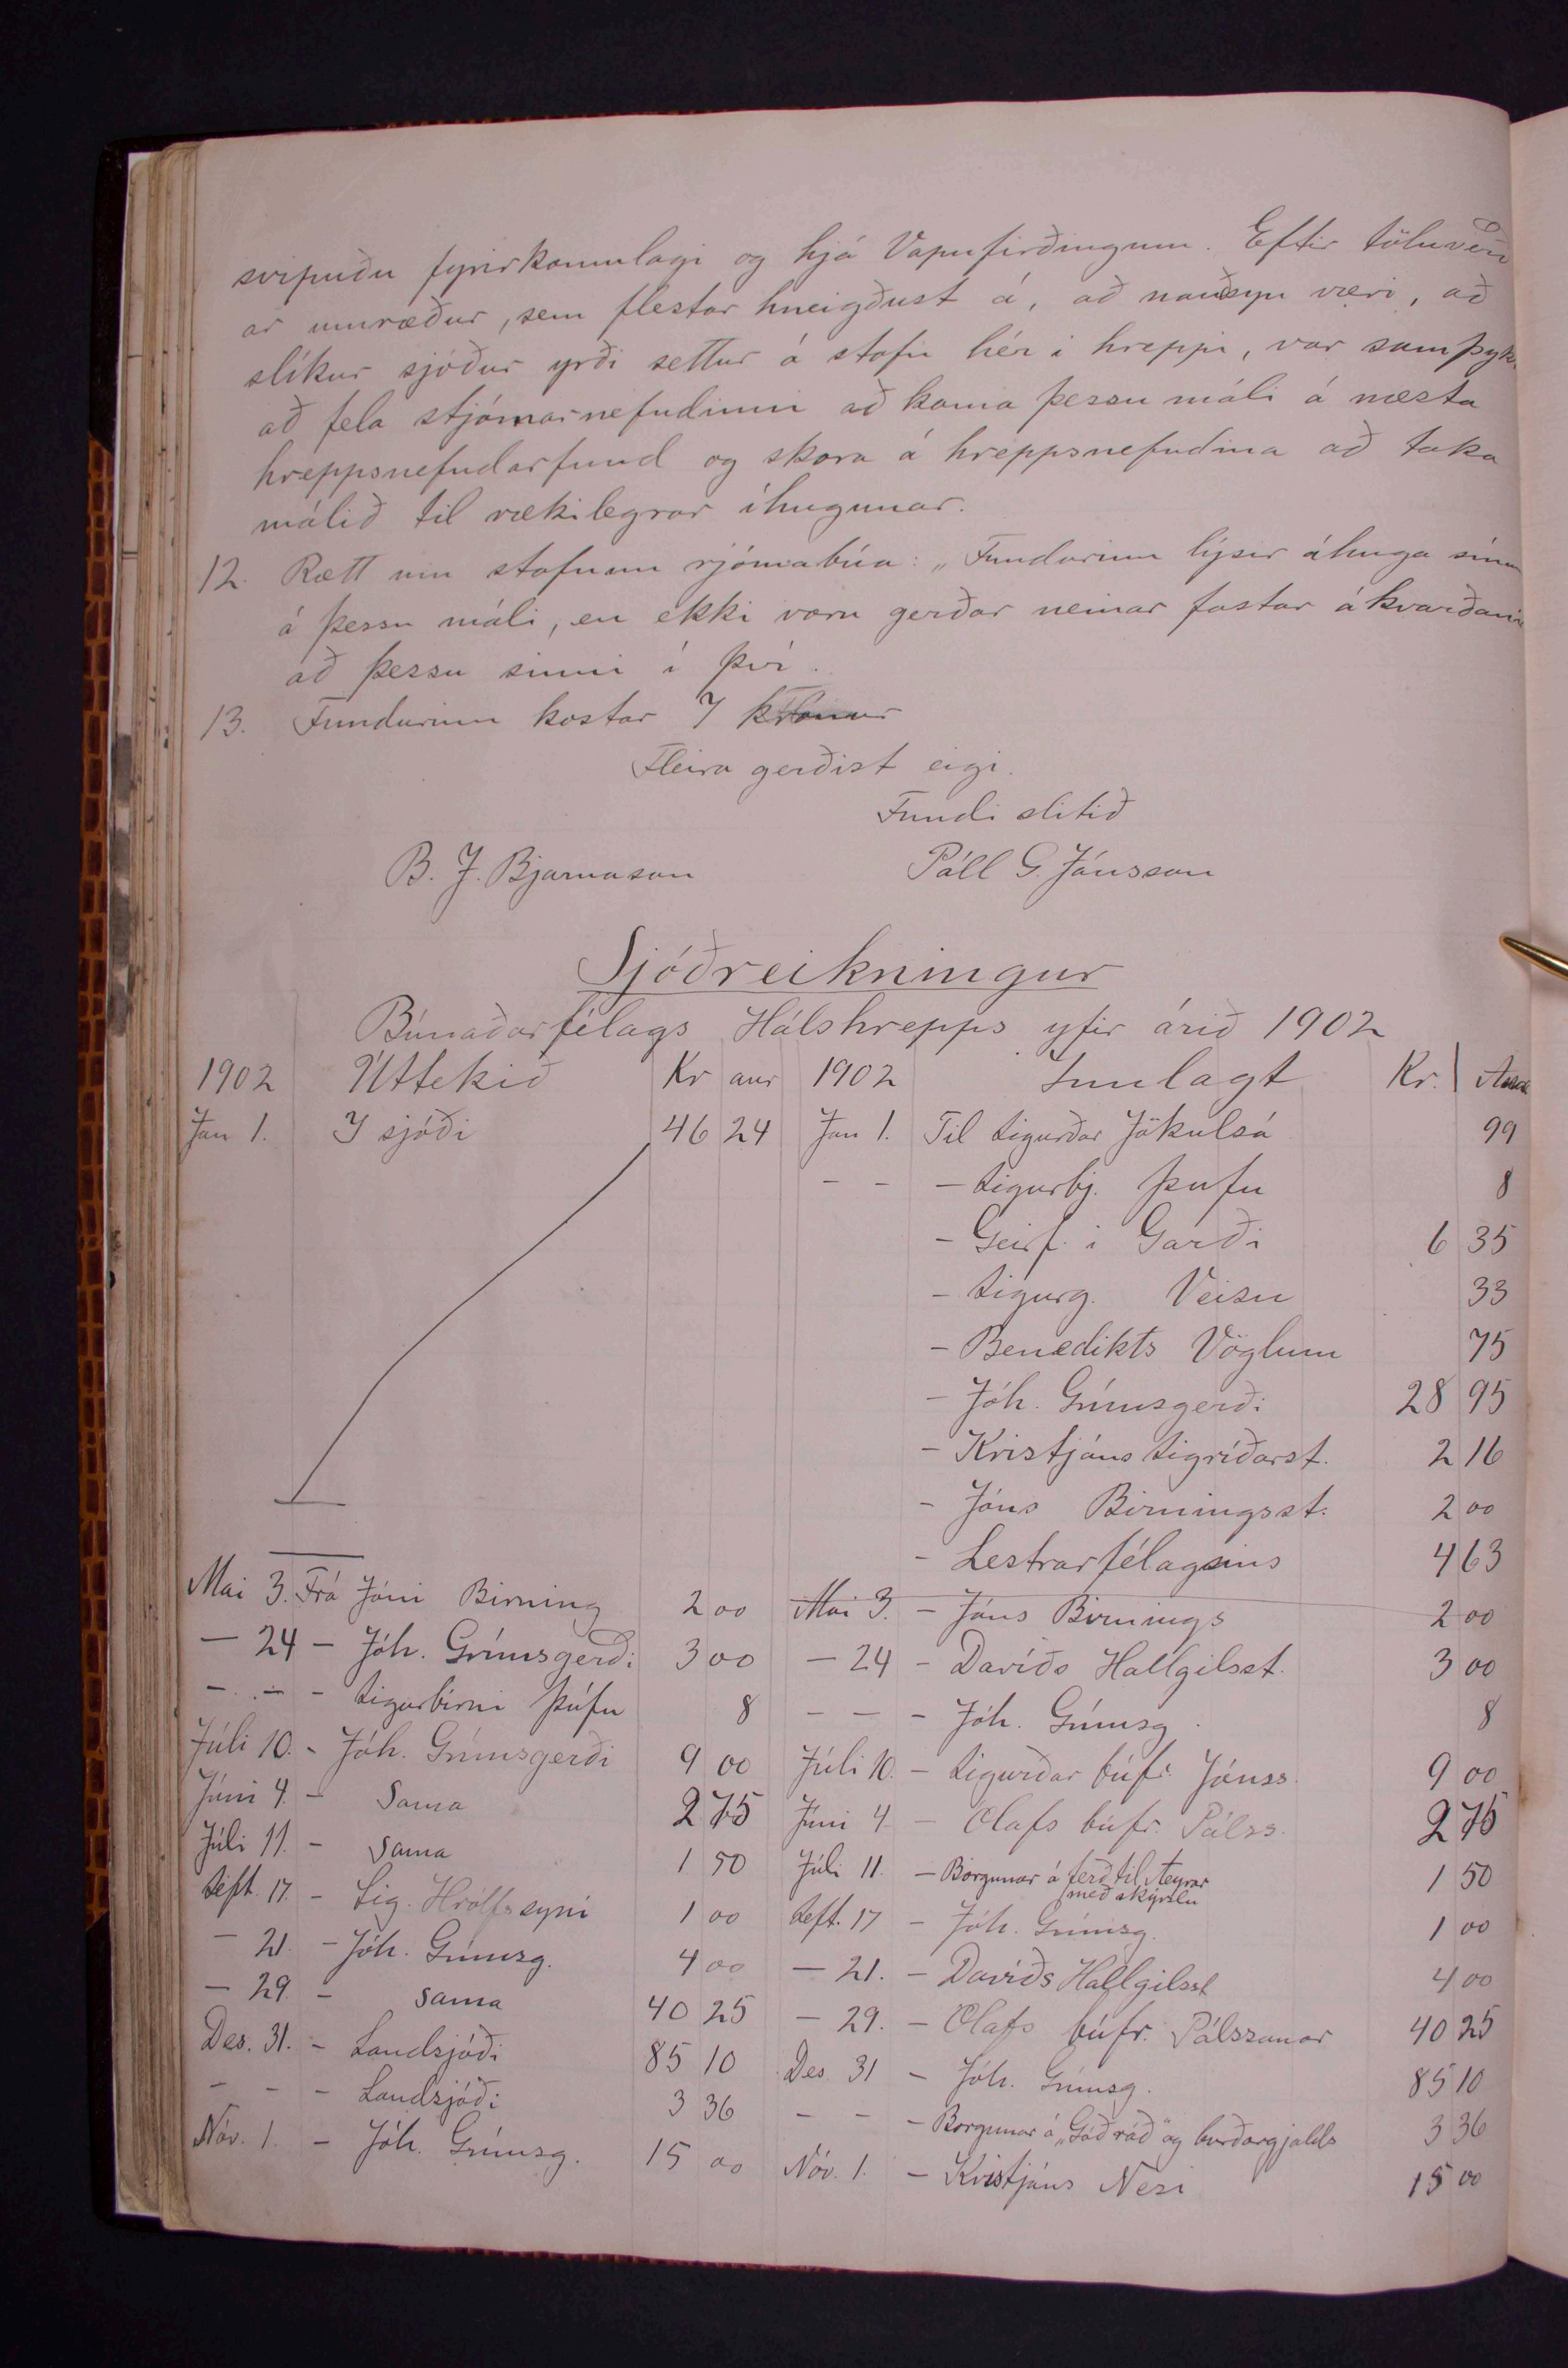 svipuðu fyrirkomulagi og hjá Vopnfirðingum. Eftir töluverð
ar umræður, sem flestar hneigðust á, að nauðsyn væri, að
slíkur sjóður yrði settur á stofn hér í hreppi, var samþykt
að fela stjórnarnefndinni að koma þessu máli á næsta
hreppsnefndarfund og skora á hreppsnefndina að taka
málið til rækilegrar íhugunar.
12. Rætt um stofnun rjómabúa: „Fundurinn lýsir áhuga sínum
á þessu máli, en ekki voru gerðar neinar fastar ákvarðanir
að þessu sinni í því.
13. Fundurinn kostar 7 krónur
Fleira gerðist eigi.
Fundi slitið
B. J. Bjarnason Páll G. Jónsson
Sjóðreikningur
Búnaðarfélags Hálshrepps yfir árið 1902
1902 Úttekið Kr aur 1902 Innlagt Kr. Aura
Jan 1. Í sjóði 46 24 Jan 1. Til Sigurðar Jökulsá 99
- - - Sigurbj. Þúfu 8
- Geirf. í Garði 6 35
- Sigurg. Veisu 33
- Benedikts Vöglum 75
- Jóh. Grímsgerði 28 95
- Kristjáns Sigríðarst. 2 16
- Jóns Birningsst. 2 00
- Lestrarfélagsins 4 63
Mai 3. Frá Jóni Birning 2 00 Mai 3. - Jóns Birnings 2 00
- 24 - Jóh. Grímsgerði 3 00 - 24 - Davíðs Hallgilsst. 3 00
- - - Sigurbirni Þúfu 8 - - - Jóh. Grímsg. 8
Júlí 10. - Jóh. Grímsgerði 9 00 Júlí 10. - Sigurðar búfr. Jónss. 9 00
Júní 4. - Sama 2 75 Júní 4 - Olafs búfr. Pálss. 2 75
Júlí 11. - Sama 1 50 Júlí 11. - Borgunar á ferð til Aeyrar með skýrslu 1 50
Sept. 17. - Sig. Hrólfssyni 1 00 Sept. 17 - Jóh. Grímsg. 1 00
- 21. - Jóh. Grímsg. 4 00 - 21. - Davíðs Hallgilsst 4 00
- 29. - Sama 40 25 - 29. - Olafs búfr. Pálssonar 40 25
Des. 31. - Landsjóði 85 10 Des. 31 - Jóh. Grímsg. 85 10
- - - Landsjóði 3 36 - - - Borgunar á „Góð ráð" og burðargjalds 3 36
Nóv. 1. - Jóh. Grímsg. 15 00 Nóv. 1. - Kristjáns Nesi 15 00